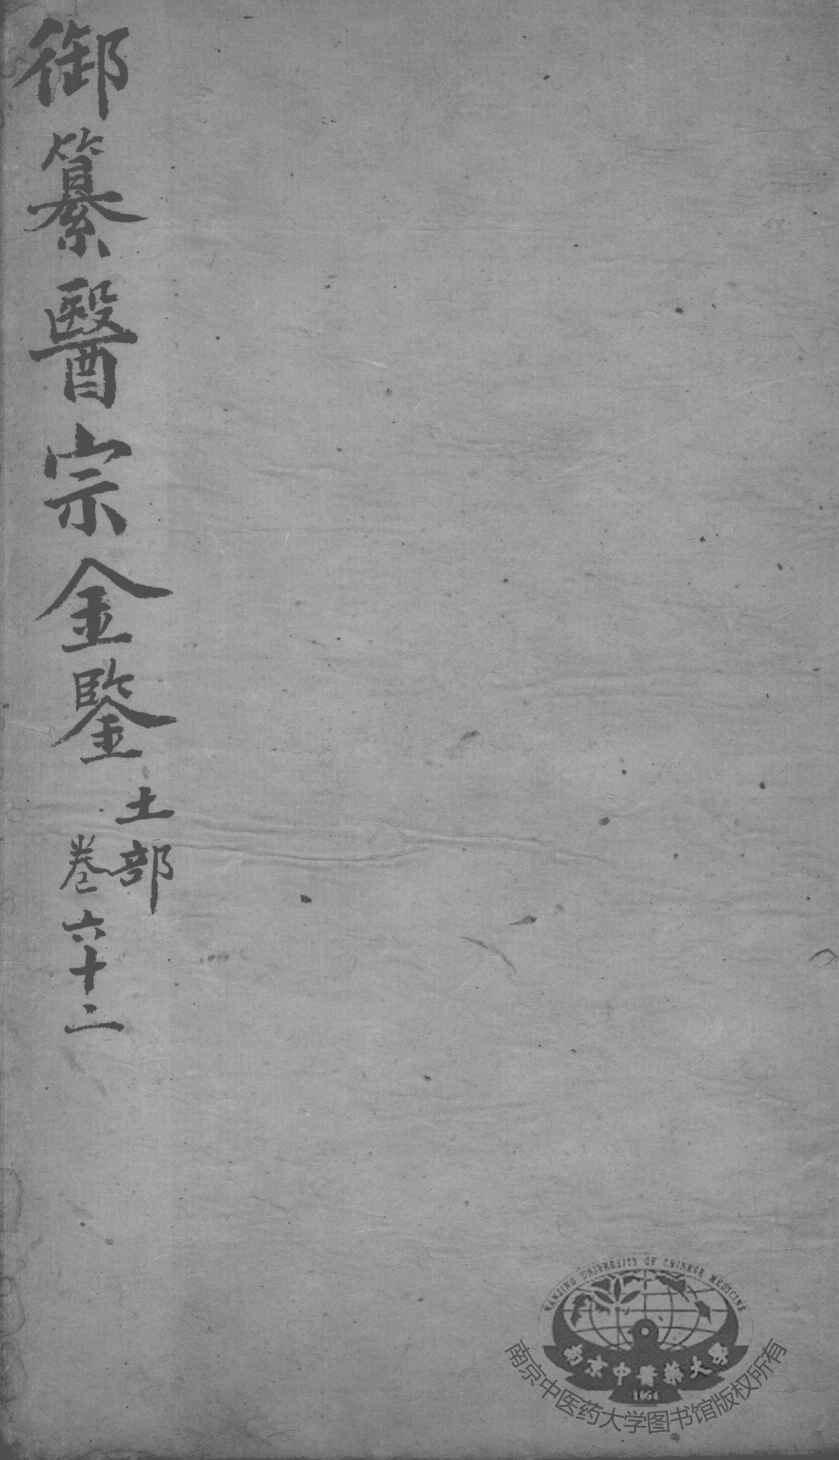 御纂醫宗金鑒
土部
卷六十二
NANJING UNIVERSITY OF CHINESE MEDICINE
南京中醫藥大學
1954
南京中医药大学图书馆版权所有